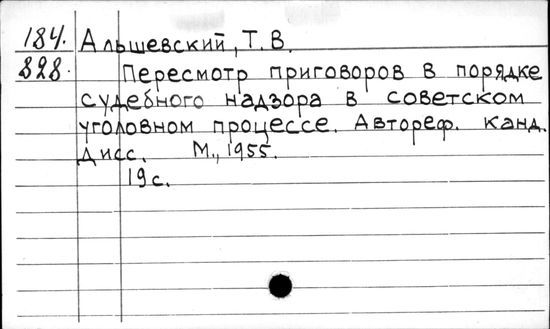 184. Альшевский, Т. В.
828. Пересмотр приговоров в порядке
судебного надзора в советском
уголовном процессе. Автореф. канд.
дисс. М., 1955.
19 с.